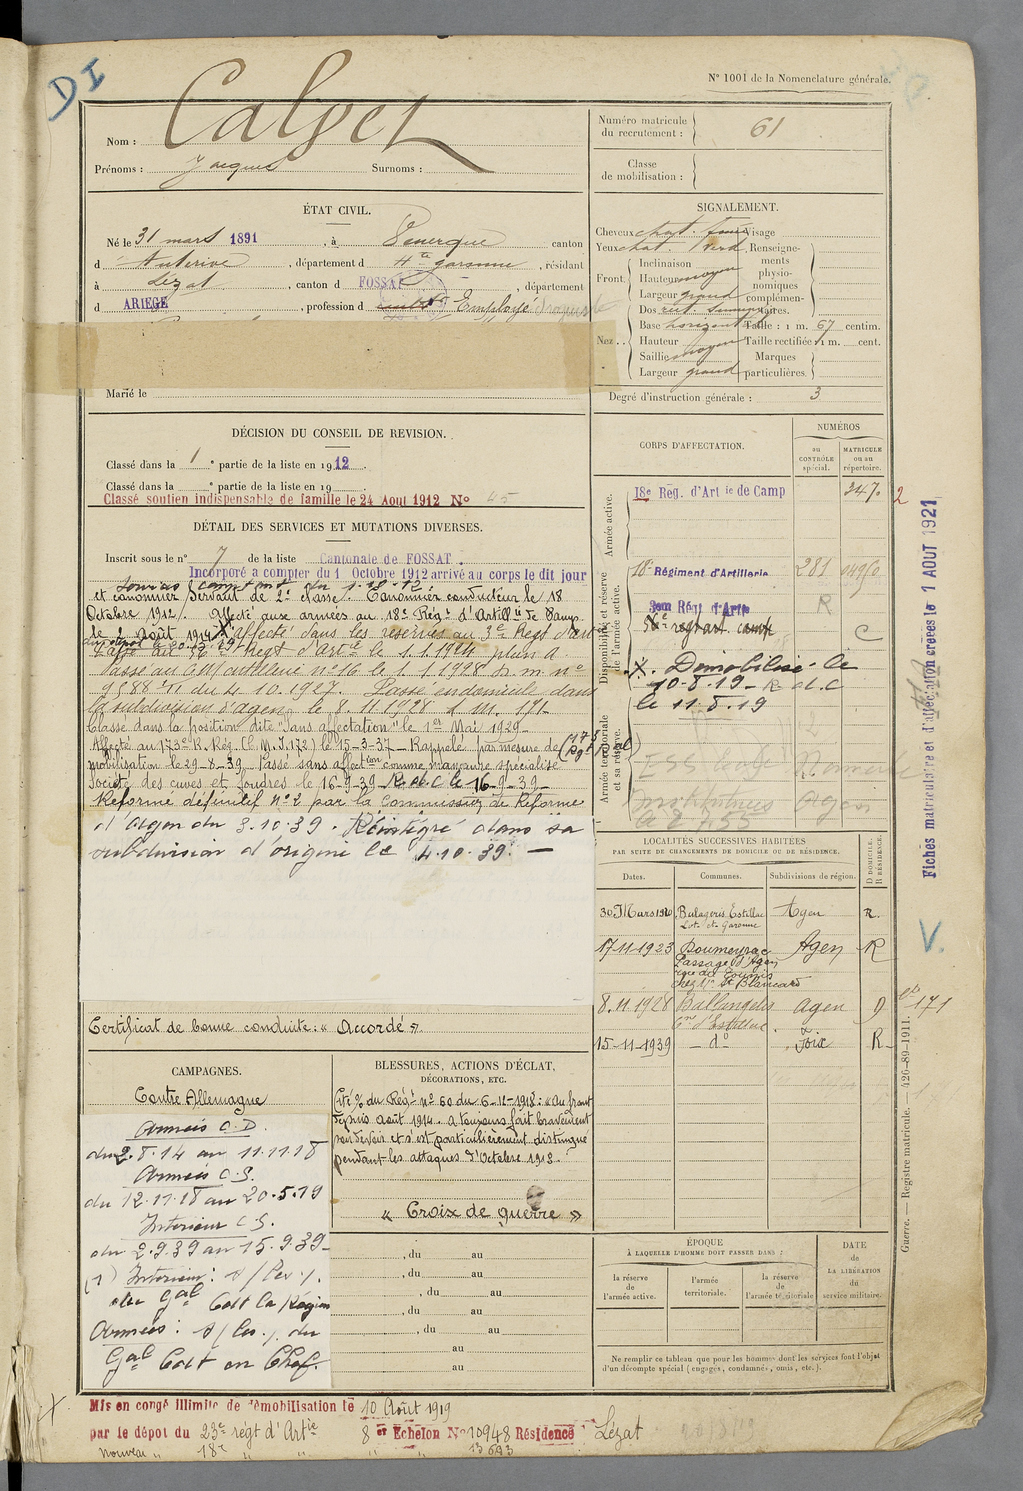 DI
N° 1001 de la Nomenclature générale.
Nom : Calvet
Prénoms : Jacques Surnoms :
Numéro matricule du recrutement : 61
Classe de mobilisation :
ÉTAT CIVIL.
Né le 31 mars 1891, à Venerque canton
d' Auterive, département d Hte garonne, résidant
à Lézat, canton d FOSSAT, département
d ARIÈGE, profession d Employé
Marié le
SIGNALEMENT.
Cheveux chat. foncé Visage
Yeux chat. verd
Renseignements physionomiques complémentaires.
Front.
Inclinaison
Hauteur moyen
Largeur grand
Dos rect.
Nez . .
Base horizontale
Hauteur moyen
Saillie moyen
Largeur grand
Taille : 1 m. 67 centim.
Taille rectifiée : 1 m. cent.
Marques particulières.
Degré d'instruction générale : 3
DÉCISION DU CONSEIL DE REVISION.
Classé dans la 1 e partie de la liste en 1912.
Classé dans la e partie de la liste en 19 .
Classé soutien indispensable de famille le 24 Aout 1912 N° 45
DÉTAIL DES SERVICES ET MUTATIONS DIVERSES.
Inscrit sous le n° 7 de la liste Cantonale de FOSSAT.
Incorporé a compter du 1 Octobre 1912 arrivé au corps le dit jour
et canonnier servant de 2e classe. Canonnier conducteur le 18
Octobre 1912. Affecté aux armées au 18e Régt d'Artillie de Camp.
le 2 Août 1914. Affecté dans les réserves au 3e Regt d'art
Passé au Regt d'artie le 1.1.1924 plan A
Passé au C.M. artillerie n° 16 le 1.1.1928 d.m. n°
9588 du 4.10.1927. Passé en domicile dans
la subdivision d'agen le 8.11.1928 d m. 171-
Classé dans la position dite "Sans affectation" le 1er Mai 1929-
Affecté au 173e R. Rég. (C.M.I. 172) le 15-3-37- Rappelé par mesure de
mobilisation le 29-8-39. Passé sans affection comme manœuvre spécialisé
Société des cuves et foudres le 16-9-39 R.d.C le 16-9-39-
Réformé définitif n° 2 par la Commission de Réforme
d'Agen du 3.10.39. Réintégré dans sa
subdivision d'origine le 4.10.39. -
Certificat de bonne conduite : « Accordé ».
CORPS D'AFFECTATION.
NUMÉROS
au CONTRÔLE spécial.
MATRICULE ou au répertoire.
Armée active.
18e Rég. d'Art ie de Camp 3470 2
Disponibilité et réserve de l'armée active.
18e Régiment d'Artillerie 281
3em Régt d'Artie R
56e regt art camp C
X. Démobilisé le
10-8-19- R d.C
le 11.8.19
Armée territoriale et sa réserve.
Agen
Fiches matriculaire et d'affectation créées le 1 AOUT 1921
V.
LOCALITÉS SUCCESSIVES HABITÉES
PAR SUITE DE CHANGEMENTS DE DOMICILE OU DE RÉSIDENCE.
Dates. Communes. Subdivisions de région. D DOMICILE. R RÉSIDENCE.
30 Mars 1920 Estillac Lot-et-Garonne Agen R.
17-11-1923 Passage d'Agen Agen R
8.11.1928 Ballangela Cne d'Estillac Agen D 171
15-11-1939 - do - Foix R-
CAMPAGNES.
Contre Allemagne
Armées C.D.
du 2.8.14 au 11.11.18
Armées C.S.
du 12.11.18 au 20.5.19
Interieur C.S.
du 2.9.39 au 15.9.39-
(1) Interieur :
du Gal Cdt la Région
Armées :
Gal Cdt en Chef.
BLESSURES, ACTIONS D'ÉCLAT, DÉCORATIONS, ETC.
Cité % du Régt n° 60 du 6-11-1918 : « Au front
depuis août 1914. a toujours fait bravement
son devoir et s'est particulièrement distingué
pendant les attaques d'Octobre 1918-
« Croix de guerre »
, du au
, du au
, du au
, du au
, du au
au
au
ÉPOQUE
À LAQUELLE L'HOMME DOIT PASSER DANS :
la réserve de l'armée active.
l'armée territoriale.
la réserve de l'armée territoriale.
DATE de LA LIBÉRATION du service militaire.
Ne remplir ce tableau que pour les hommes dont les services font l'objet
d'un décompte spécial (engagés, condamnés, omis, etc.).
Guerre. — Registre matricule. — 426-89-1911.
Mis en congé illimité de démobilisation le 10 Août 1919
par le dépot du 23e régt d'Artie 8 em Echelon N° 10948 Résidence Lézat
nouveau " 18e " " 13693